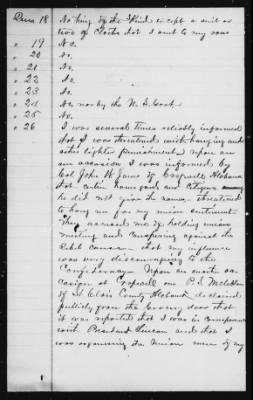 Ques 18 Nothing of the kind except a suit or
two of Clothes that I sent to my sons
" 19 No.
" 20 No.
" 21 No.
" 22 No.
" 23 No.
" 24 No nor by the U. S. Govt.
" 25 No.
" 26 I was several times reliably informed
that I was threatened with hanging and
other lighter punishments. Upon one
occasion I was informed by
Col John W. of Cropwell Alabama
that certain home guards and Citizens
he did not give the names threatened
to hang me for my union sentiments
They accused me of holding union
meetings and conspiring against the
Rebel cause that my influence
was very discouraging to the
Confederacy. Upon another oc-
casion at Cropwell one P. S.
of St Clair County Alabama declared
publicly from the Grocery door that
it was reported that I was in
with President Lincoln and that I
was organizing the Union men of my